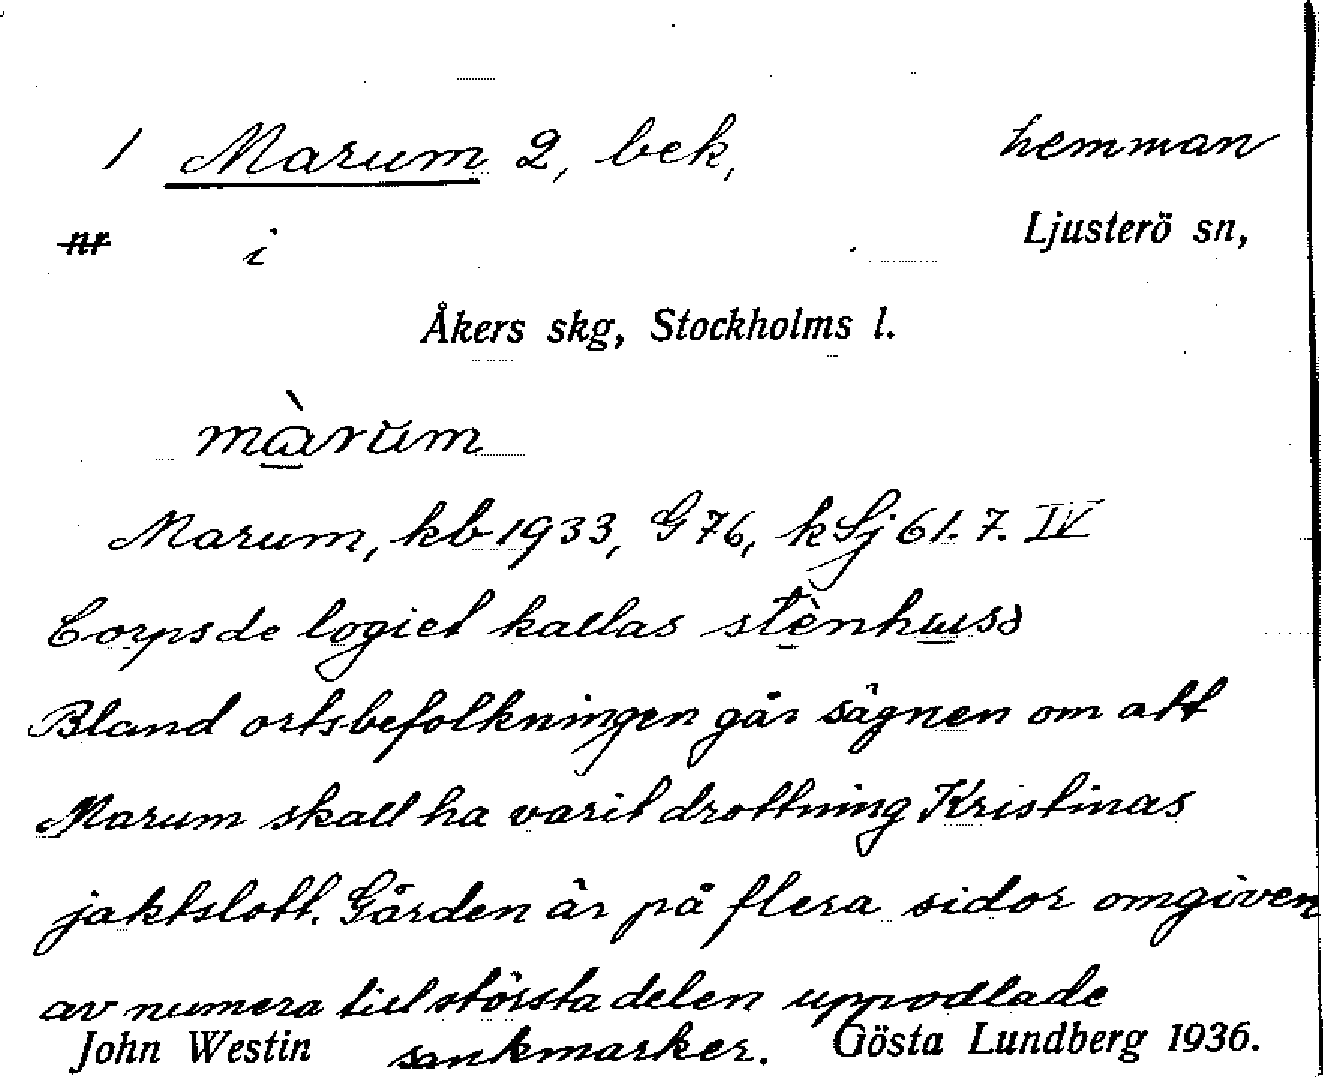 1 Marum 2, bek, hemman
nr i Ljusterö sn,
Åkers skg, Stockholms l.
màrŭm
Marum, kb 1933, G 76, k Lj 61. 7. IV
Corps de logiet kallas stènhusə
Bland ortsbefolkningen går sägnen om att
Marum skall ha varit drottning Kristinas
jaktslott. Gården är på flera sidor omgiven
av numera till största delen uppodlade
sankmarker.
John Westin Gösta Lundberg 1936.